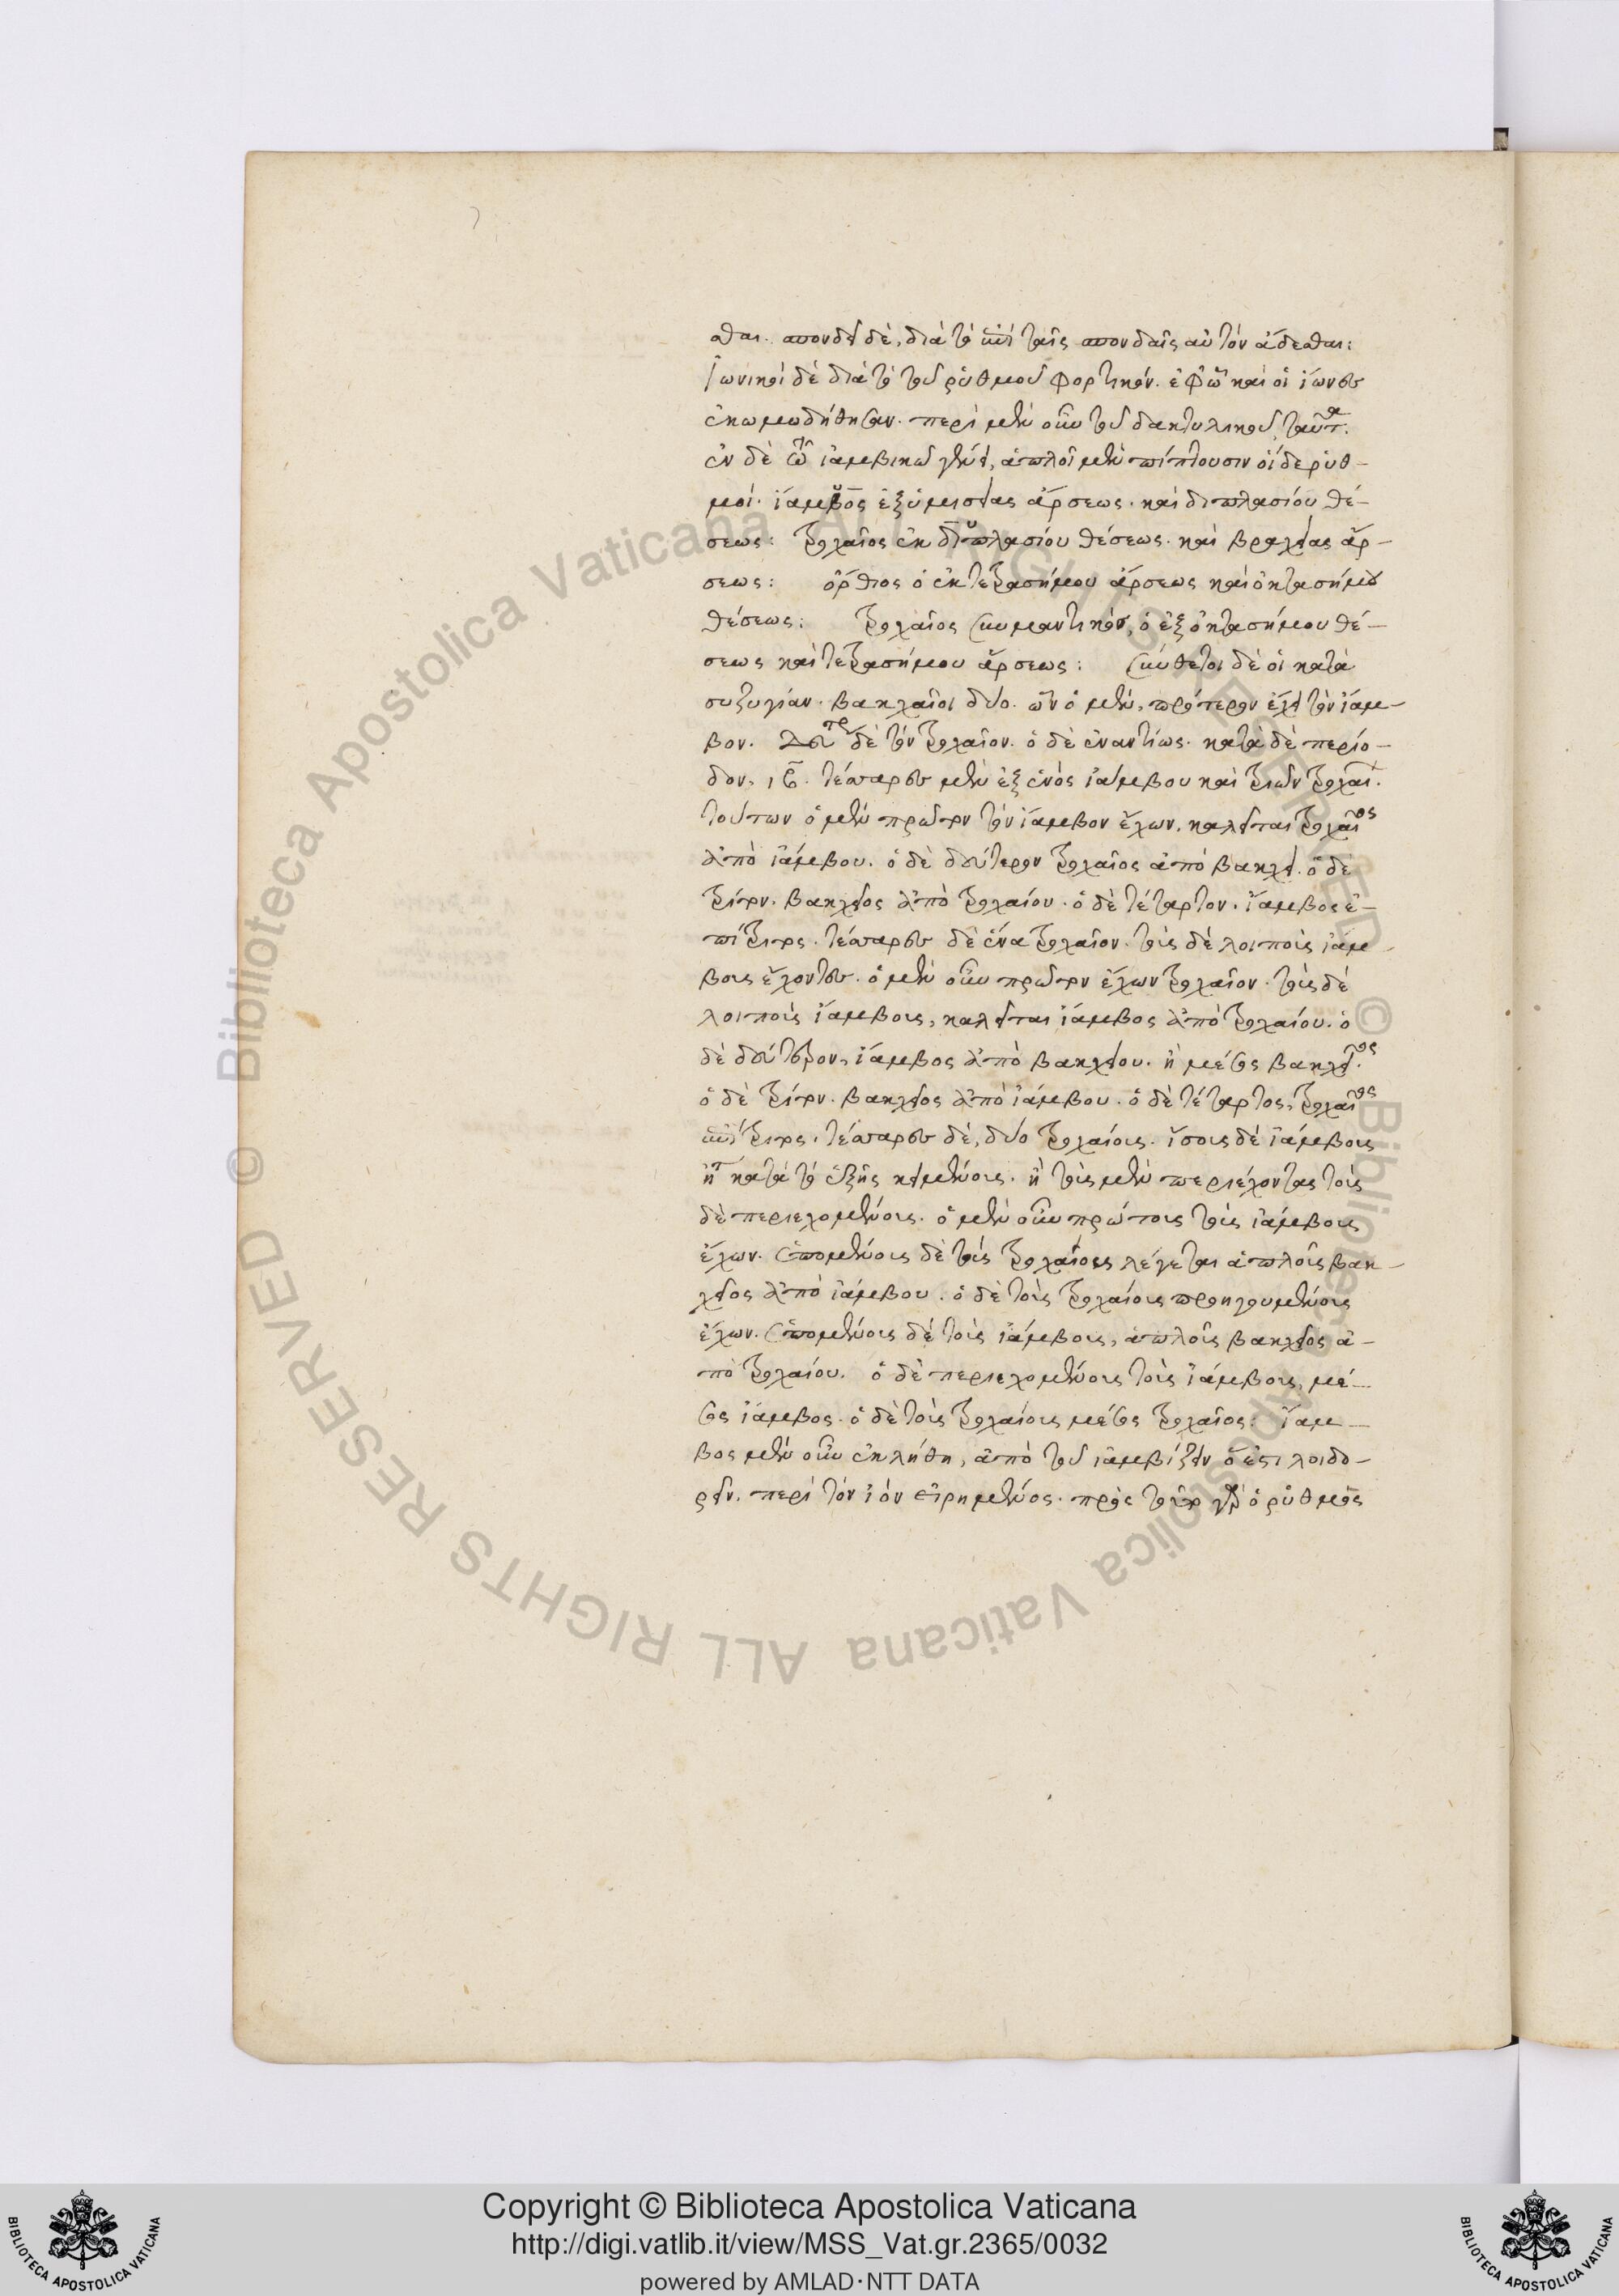 σθαι. σπονδεῖ δὲ, διὰ τὸ ἐπὶ ταῖς σπονδαῖς αὐτὸν ἄδεσθαι:
ἰωνικοὶ δὲ διὰ τὸ τοῦ ῥυθμοῦ φορτικόν. ἐφ' ᾧ καὶ οἱ ἴωνες
ἐκωμωδήθησαν. περὶ μὲν οὖν τοῦ δακτυλικοῦ, ταῦτα.
ἐν δὲ τῶ ἰαμβικῶ γένει, ἁπλοῖ μὲν πίπτουσιν οἵδε ῥυθ-
μοί. ἴαμβος ἐξ ὑμισείας ἄρσεως. καὶ διπλασίου θέ-
σεως: τροχαῖος ἐκ διπλασίου θέσεως. καὶ βραχείας ἄρ-
σεως: ὄρθιος ὁ ἐκ τετρασήμου ἄρσεως καὶ ὀκτασήμου
θέσεως: τροχαῖος σημαντικός, ὁ ἐξ ὀκτασήμου θέ-
σεως καὶ τετρασήμου ἄρσεως: σύνθετοι δὲ οἱ κατὰ
συζυγίαν. βακχαῖοι δύο. ὧν ὁ μὲν, πρότερον ἔχει τὸν ἴαμ-
βον. δεύτερον δὲ τὸν τροχαῖον. ὁ δὲ ἐναντίως. κατὰ δὲ περίο-
δον, ιβ. τέσσαρες μὲν ἐξ ἑνὸς ἰάμβου καὶ τριῶν τροχαί.
τούτων ὁ μὲν πρῶτον τὸν ἴαμβον ἔχων, καλεῖται τροχαῖος
ἀπὸ ἰάμβου. ὁ δὲ δεύτερον τροχαῖος ἀπὸ βακχεί. ὁ δὲ
τρίτον. βακχεῖος ἀπὸ τροχαίου. ὁ δὲ τέταρτον. ἴαμβος ἐ-
πίτριτος. τέσσαρες δὲ ἕνα τροχαῖον. τοὺς δὲ λοιποὺς ἰάμ-
βους ἔχοντες. ὁ μὲν οὖν πρῶτον ἔχων τροχαῖον. τοὺς δὲ
λοιποὺς ἰάμβους, καλεῖται ἴαμβος ἀπὸ τροχαίου. ὁ
δὲ δεύτερον, ἴαμβος ἀπὸ βακχείου. ἢ μέσος βακχεῖος.
ὁ δὲ τρίτον. βακχεῖος ἀπὸ ἰάμβου. ὁ δὲ τέταρτος, τροχαῖος
ἐπίτριτος. τέσσαρες δὲ, δύο τροχαίους. ἴσους δὲ ἰάμβους
ἤτ κατὰ τὸ ἑξῆς κειμένους. ἢ τοὺς μὲν περιέχοντας τοὺς
δὲ περιεχομένους. ὁ μὲν οὖν πρώτους τοὺς ἰάμβους
ἔχων. ἑπομένους δὲ τοὺς τροχαίους λέγεται ἁπλοῦς βακ-
χεῖος ἀπὸ ἰάμβου. ὁ δὲ τοὺς τροχαίους προηγουμένους
ἔχων. ἑπομένους δὲ τοὺς ἰάμβους, ἁπλοῦς βακχεῖος ἀ-
πὸ τροχαίου. ὁ δὲ περιεχομένους τοὺς ἰάμβους, μέ-
σος ἴαμβος. ὁ δὲ τοὺς τροχαίους μέσος τροχαῖος: ἴαμ-
βος μὲν οὖν ἐκλήθη, ἀπὸ τοῦ ἰαμβίζειν ὅ ἐστι λοιδο-
ρεῖν. περὶ τὸν ἰὸν εἰρημένος. πρὸς γὰρ ὁ ῥυθμὸς
© Biblioteca Apostolica Vaticana ALL RIGHTS RESERVED
© Biblioteca Apostolica Vaticana ALL RIGHTS RESERVED
Copyright © Biblioteca Apostolica Vaticana
http://digi.vatlib.it/view/MSS_Vat.gr.2365/0032
powered by AMLAD·NTT DATA
BIBLIOTECA APOSTOLICA VATICANA
BIBLIOTECA APOSTOLICA VATICANA